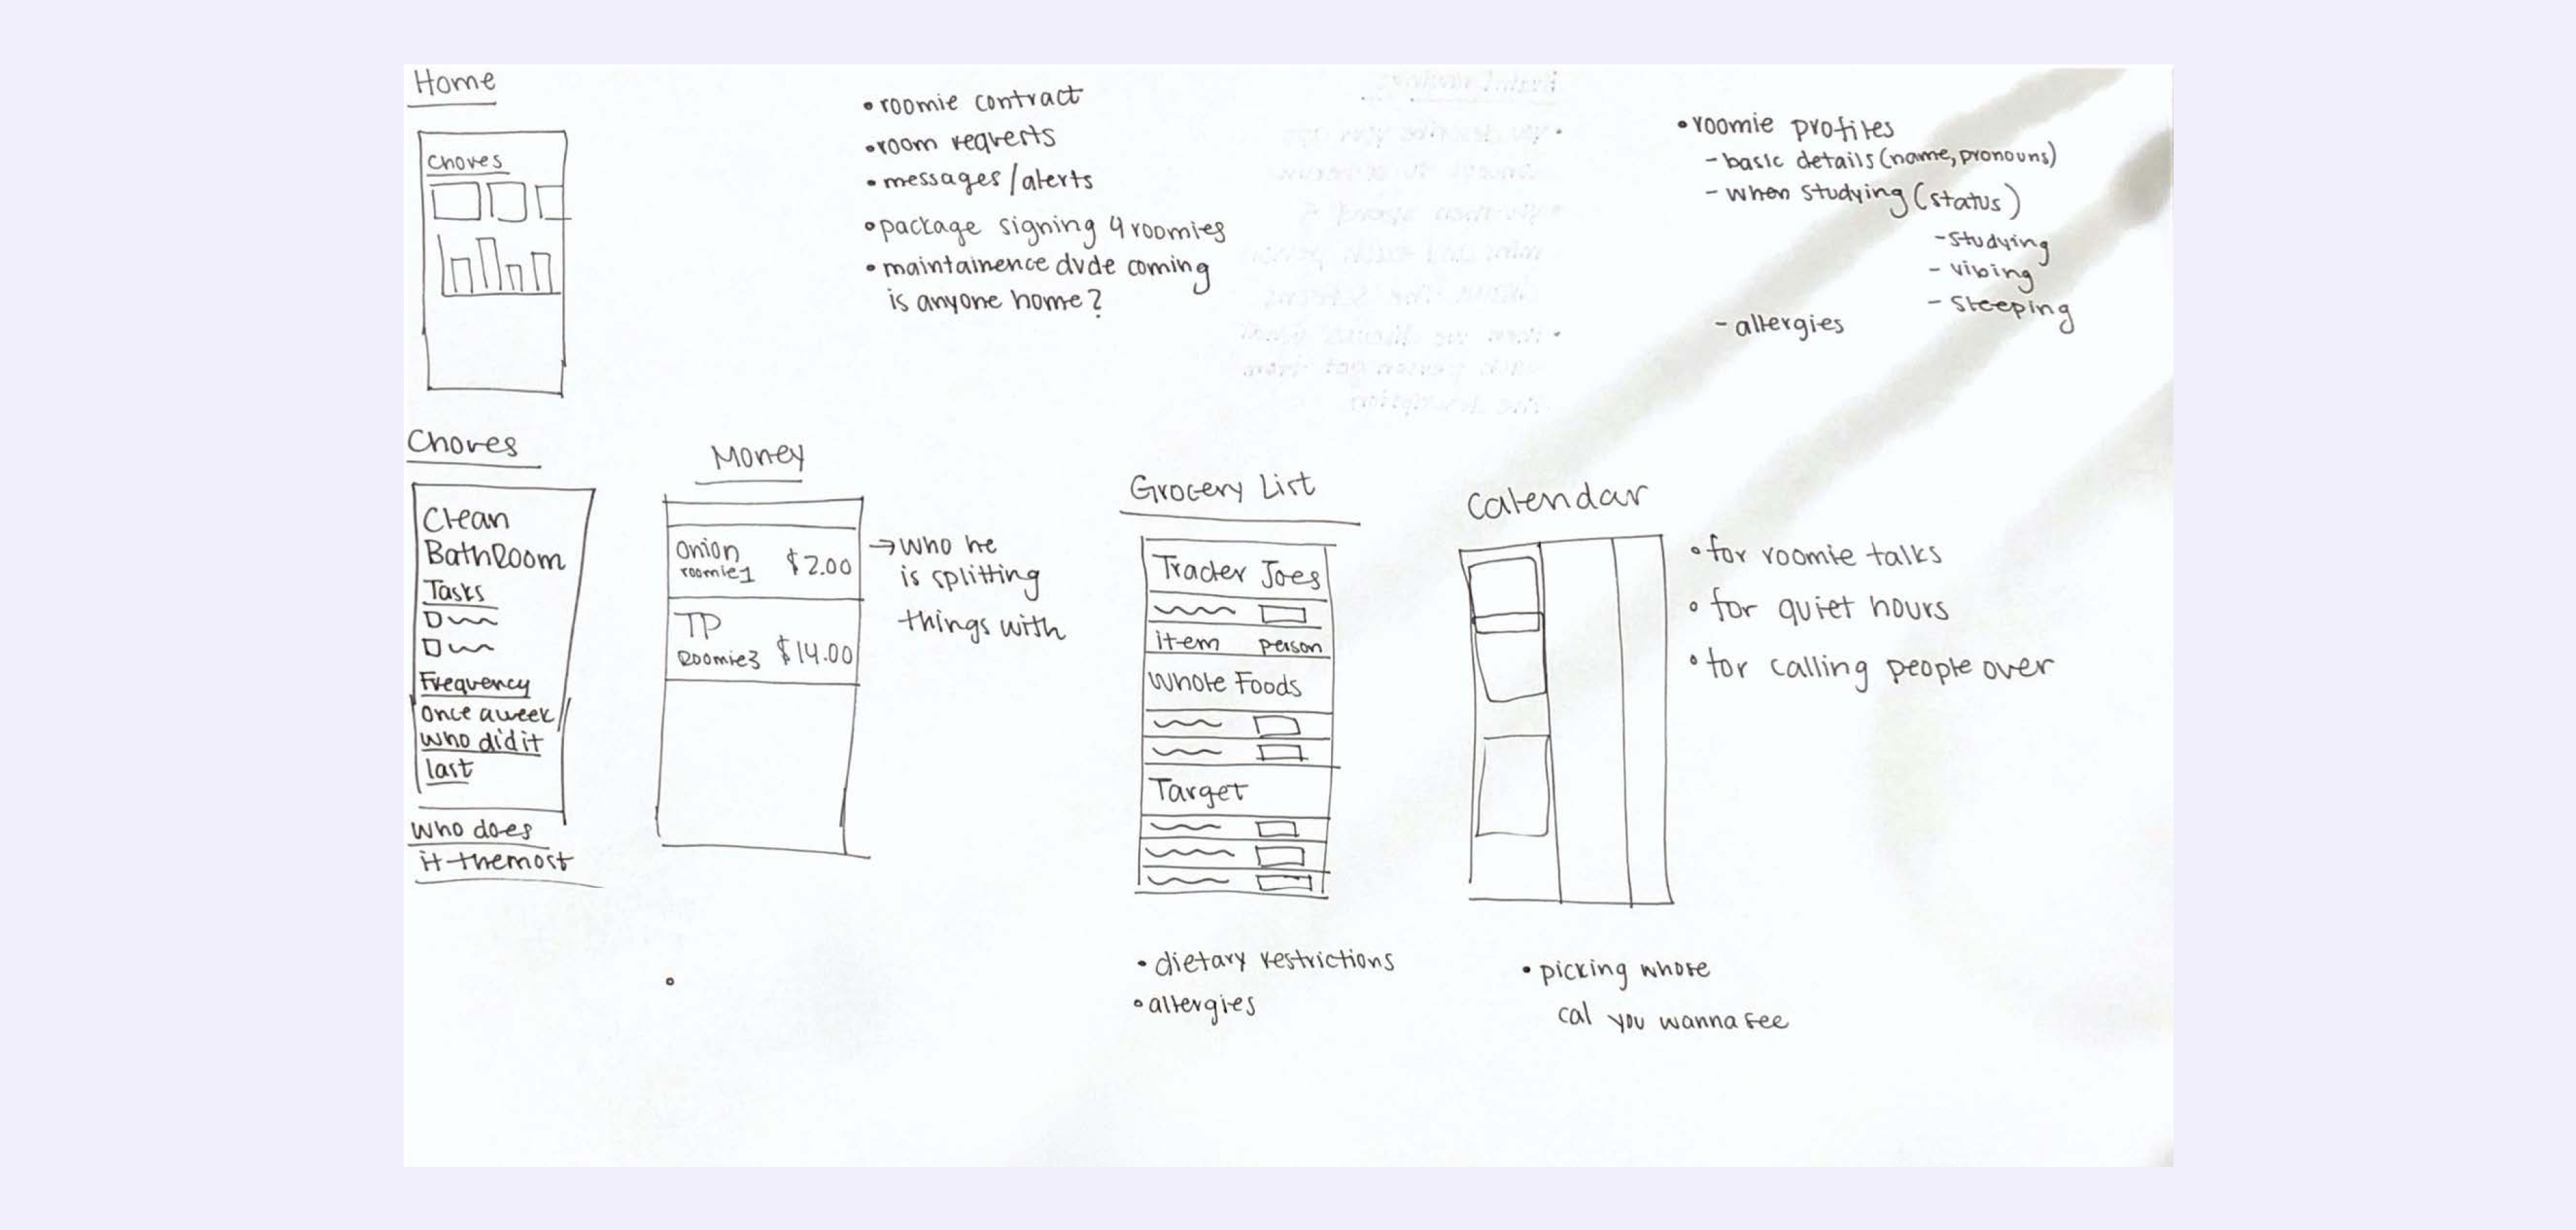 Home
Chores
• roomie contract
• room requests
• messages/alerts
• package signing 4 roomies
• maintainence dude coming
is anyone home?
• roomie profiles
- basic details (name, pronouns)
- when studying (status)
- studying
- vibing
- sleeping
- allergies
Chores
Clean
BathRoom
Tasks
Frequency
once a week
who did it
last
who does
it the most
Money
Onion
roomie1 $2.00
TP
Roomie3 $14.00
→ who he
is splitting
things with
Grocery List
Trader Joes
item person
Whole Foods
Target
• dietary restrictions
• allergies
Calendar
• for roomie talks
• for quiet hours
• for calling people over
• picking whose
cal you wanna see